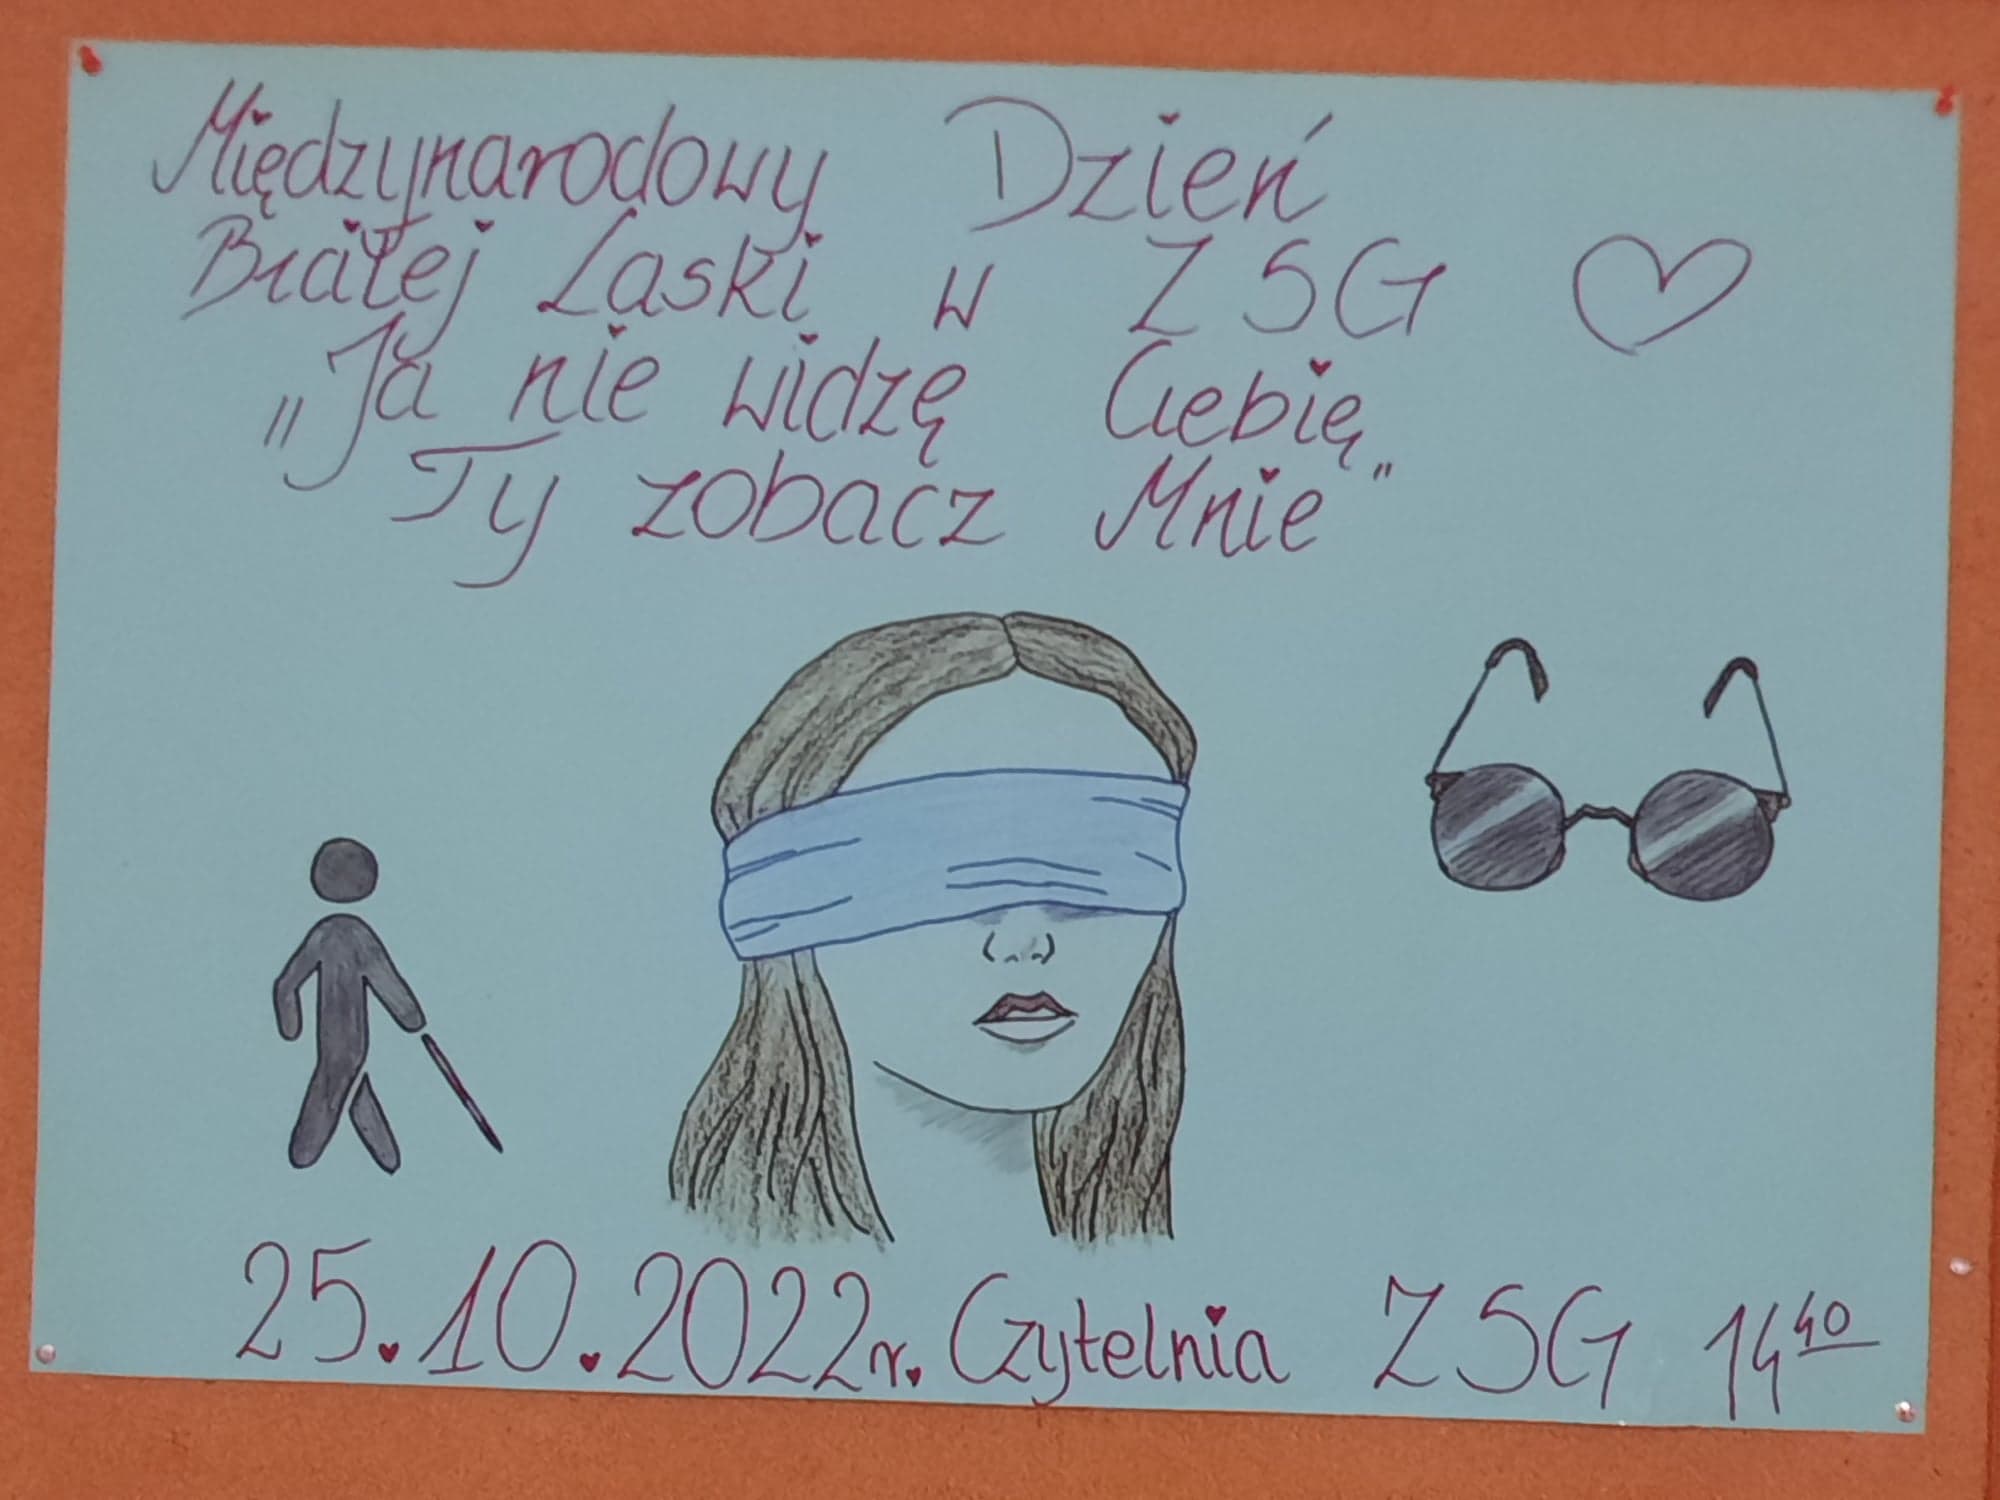 Międzynarodowy Dzień
Białej Laski w ZSG
„Ja nie widzę Ciebie
Ty zobacz Mnie"
25.10.2022r. Czytelnia ZSG 14⁴⁰